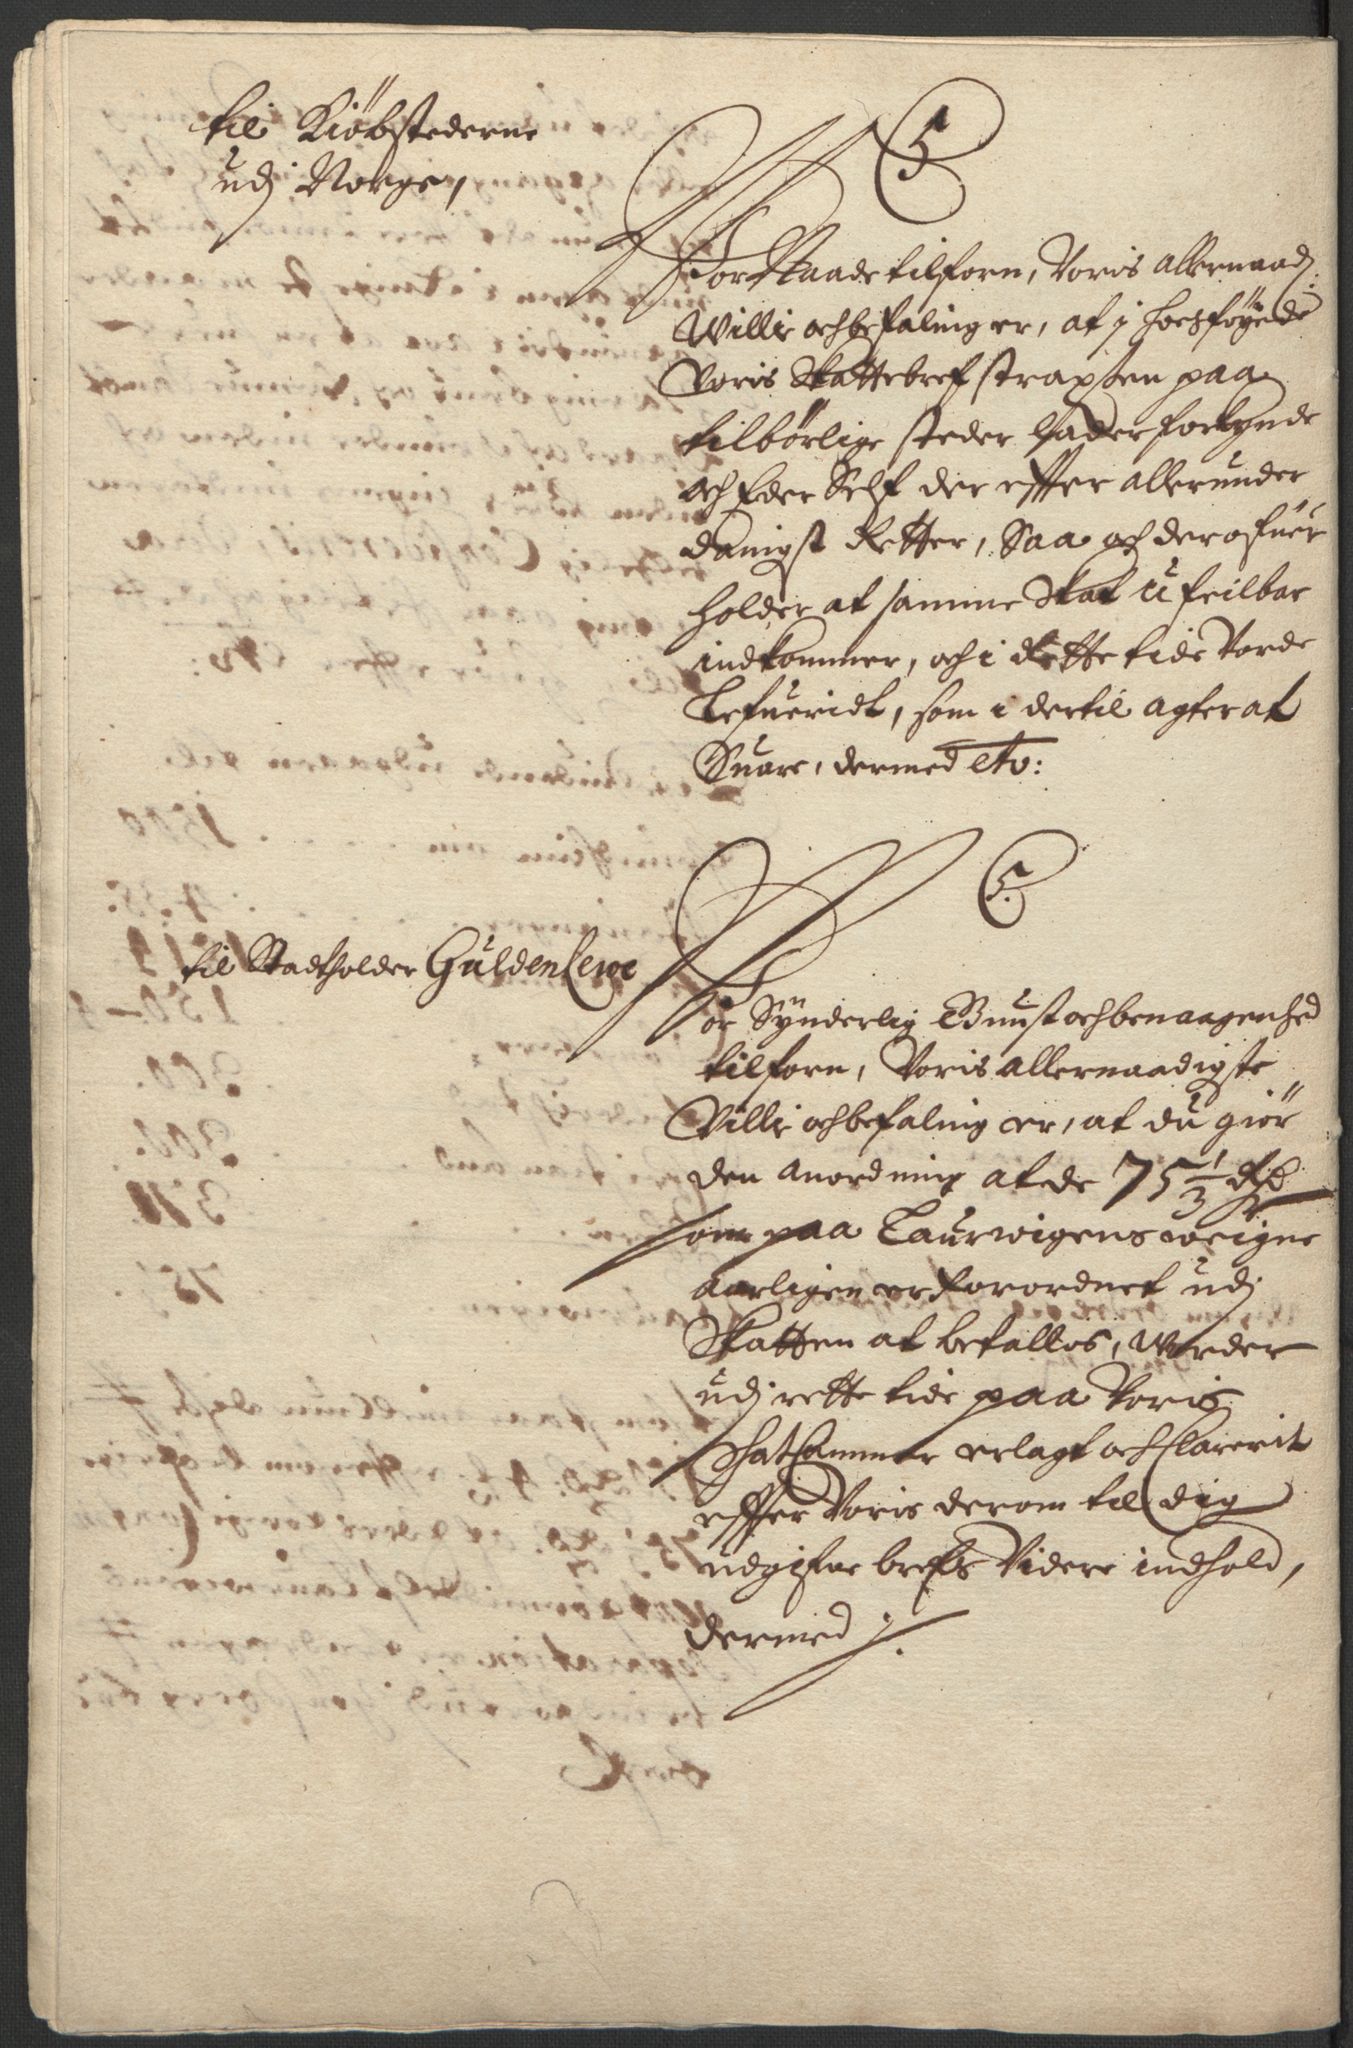 til Kiöbstederne
udj Norge,
C 5
Vor Naade tilforn, Voris allernaad:
Willie och befaling er, at j hoesföyede
Voris Skattebref straxsen paa
tilbörlige steder lader forkynde
och Eder Self der effter allerunder
danigst Retter, Saa och der ofuer
holder at samme Skat ufeilbar
indkommer, och i Rette tide Vorde
Lefueridt, som i dertil agter at
Suare, dermed etc:
C 5.
til Stadtholder Güldenlewe
Vor Synderlig Gunst och benaagenhed
tilforn, Voris allernaadigste
Villie och befaling er, at du giör
den anordning at de 75 1/3 Rd
som paa Laurwigens weigne
aarligen er forordnet udj
Skatten at betallis, Worder
udj rette tide paa Voris
Schatkammer erlagt och Clarerit
effter Voris derom til dig
udgifne brefs Videre indhold,
dermed ⁒.